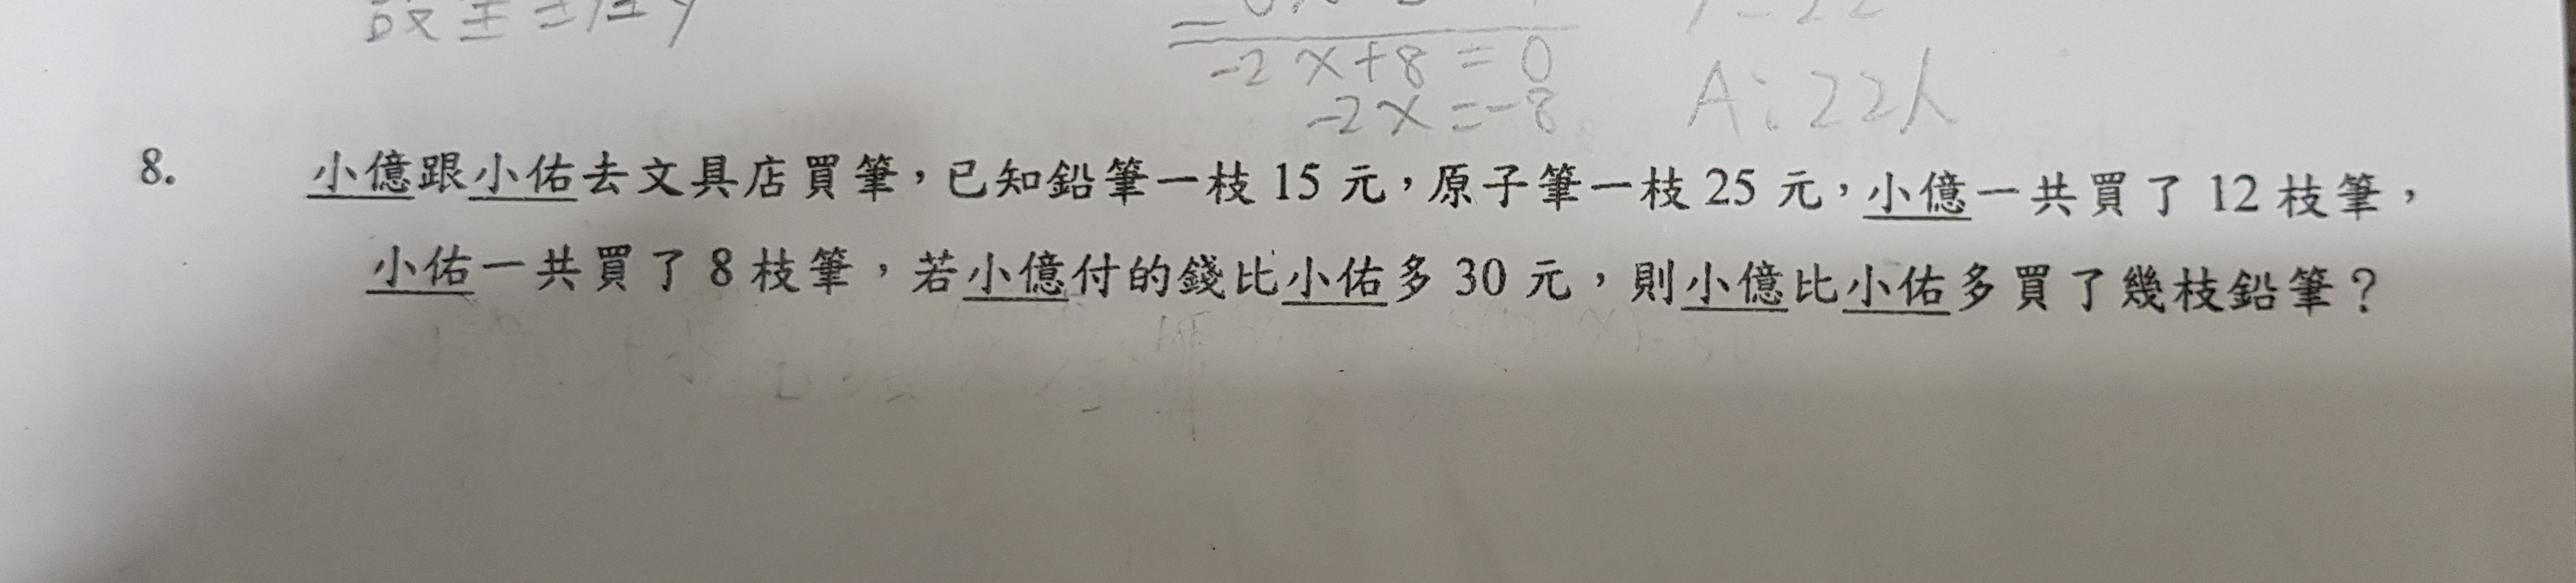 -2x+8=0
-2x=-8
A:22人
8. 小億跟小佑去文具店買筆，已知鉛筆一枝 15 元，原子筆一枝 25 元，小億一共買了 12 枝筆，
小佑一共買了 8 枝筆，若小億付的錢比小佑多 30 元，則小億比小佑多買了幾枝鉛筆？